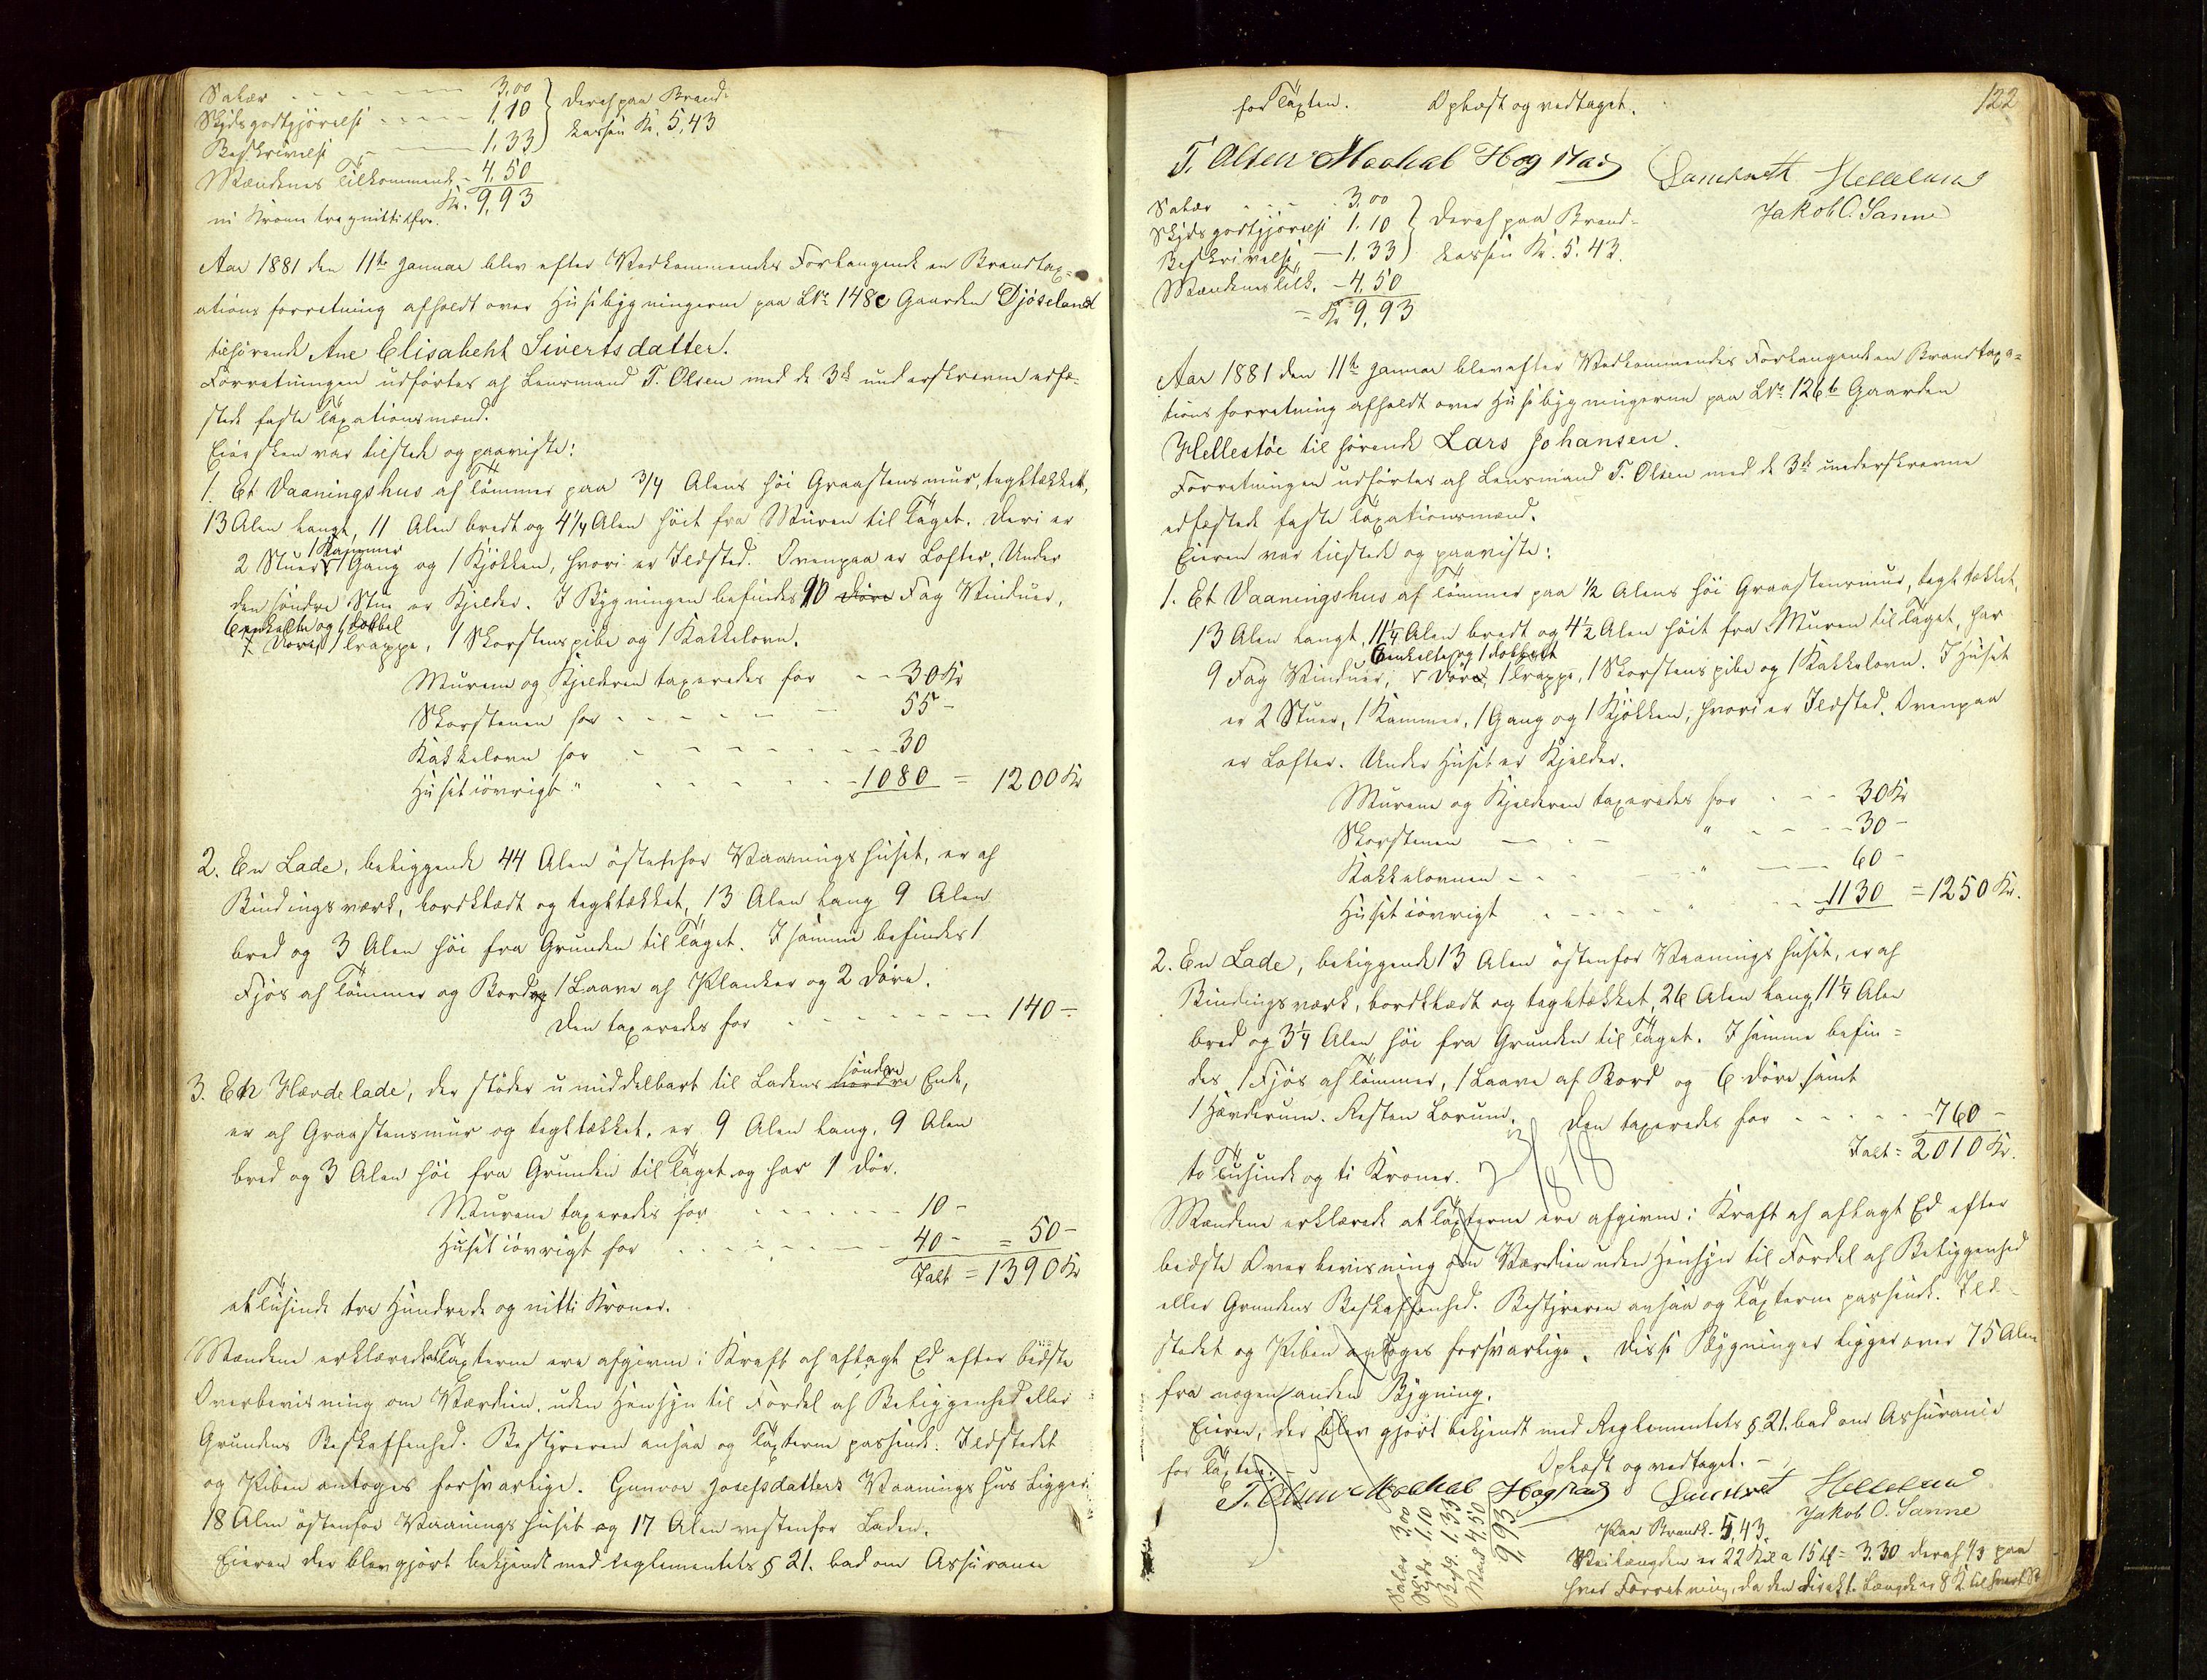 Salær - - - - - 3,00
Skydsgodtgjörelse - - - - 1,10 } deraf paa Brand-
Beskrivelse - - - 1,33 kassen Kr. 5,43
Mændenes Tilkommende - 4,50
Kr. 9,93
ni Kroner tre og nitti Øre.
Aar 1881 den 11te Januar blev efter Vedkommendes Forlangende en Brandtax-
ations forretning afholdt over Husebygningerne paa LNr 148c Gaarden Djöseland
tilhörende Ane Elisabeht Sivertsdatter.
Forretningen udfortes af Lensmand T. Olsen med de 3de underskrevne edfæ-
stede faste Taxationsmænd.
Eiersken var tilstede og paaviste:
1. Et Vaaningshus af Tömmer paa 3/4 Alens höi Graastensmur, teghtækket,
13 Alen langt, 11 Alen bredt og 4 1/4 Alen höit fra Muren til Taget. Deri er
1 Kammer
2 Stuer, 1 Gang og 1 Kjökken, hvori er Ildsted. Ovenpaa er Lofter. Under
den söndre Stue er Kjelder. I Bygningen befindes 10 Döre Fag Vinduer,
6 enkelte og 1 dobbel
7 Döre, 1 Trappe, 1 Skorstenspibe og 1 Kakkelovn.
Murene og Kjelderen taxeredes for - - 30 Kr
Skorstenen for - - - - - 55 -
Kakkelovn for - - - - - - 30
Huset iövrigt " - - - - - 1080 = 1200 Kr
2. En Lade, beliggende 44 Alen östenfor Vaaningshuset, er af
Bindingsværk, bordklædt og teghtækket, 13 Alen lang 9 Alen
bred og 3 Alen höi fra Grunden til Taget. I samme befindes 1
Fjös af Tömmer og Bord og 1 Laave af Planker og 2 Döre.
Den taxeredes for - - - - - - - 140 -
3. En Hærdelade, der stöder umiddelbart til Ladens nordre söndre Ende,
er af Graastensmur og teghtækket, er 9 Alen lang, 9 Alen
bred og 3 Alen höi fra Grunden til Taget og har 1 Dör.
Murene taxeredes for - - - - - - 10 -
Huset iövrigt for - - - - - - 40 - = 50 -
Ialt = 1390 Kr
et Tusinde tre Hundrede og nitti Kroner.
Mændene erklærede at Taxterne ere afgivne i Kraft af aflagt Ed efter bedste
Overbevisning om Værdien, uden Hensyn til Fordel af Beliggenhed eller
Grundens Beskaffenhed. Bestyreren ansaa og Taxterne passende. Ildstedet
og Piben antoges forsvarlige. Gunvor Josefsdatters Vaaningshus ligger
18 Alen östenfor Vaaningshuset og 17 Alen vestenfor Laden.
Eieren der blev gjort bekjendt med Reglementets § 21. bad om Assurance
122
for Taxten. Oplæst og vedtaget.
T. Olsen Maahal Hogstad Helleland
Jakob O. Sanne
Salær - - - 3,00
Skydsgodtgjörelse 1,10 } deraf paa Brand-
Beskrivelse, - 1,33 kassen Kr. 5,43.
Mændenes Tilk. - 4,50
= Kr 9,93
Aar 1881 den 11te Januar blev efter Vedkommendes Forlangende en Brandtaxa-
tions forretning afholdt over Husebygningerne paa LNr. 126b Gaarden
Hellestöe tilhörende Lars Johansen.
Forretningen udfortes af Lensmand T. Olsen med de 3de underskrevne
edfæstede faste Taxationsmænd.
Eieren var tilstede og paaviste:
1. Et Vaaningshus af Tömmer paa 1/2 Alens höi Graastensmur, teghtækket,
13 Alen langt, 11 1/4 Alen bredt og 4 1/2 Alen höit fra Muren til Taget, har
6 enkelte og 1 dobbelt
9 Fag Vinduer, Döre, 1 Trappe, 1 Skorstenspibe og 1 Kakkelovn. I Huset
er 2 Stuer, 1 Kammer, 1 Gang og 1 Kjökken, hvori er Ildsted. Ovenpaa
er Lofter. Under Huset er Kjelder.
Murene og Kjelderen taxeredes for - - - 30 Kr
Skorstenen - - - " - - - 30 -
Kakkelovnen - - - " - - - 60 -
Huset iövrigt - - - - " - - 1130 = 1250 Kr.
2. En Lade, beliggende 13 Alen östenfor Vaaningshuset, er af
Bindingsværk, bordklædt og teghtækket, 26 Alen lang, 11 1/4 Alen
bred og 3 1/4 Alen höi fra Grunden til Taget. I samme befin-
des 1 Fjös af Tömmer, 1 Laave af Bord og 6 Döre samt
1 Hærderum. Resten Lorum. Den taxeredes for - - - - - 760 -
Ialt = 2010 Kr.
to Tusinde og ti Kroner.
Mændene erklærede at Taxterne ere afgivne i Kraft af aflagt Ed efter
bedste Overbevisning om Værdien uden Hensyn til Fordel af Beliggenhed
eller Grundens Beskaffenhed. Bestyreren ansaa og Taxterne passende. Ild-
stedet og Piben antoges forsvarlige. Disse Bygninger ligger over 75 Alen
fra nogen anden Bygning.
Eieren, der blev gjort bekjendt med Reglementets § 21. bad om Assurance
for Taxten. - Oplæst og vedtaget. -
T. Olsen Maahal Hogstad Helleland
Jakob O. Sanne
Salær 3,00
Skyds 1,10
Besk. 1,33
Mænd 4,50
9,93
Paa Brandk. 5,43.
Veilængden er 22 Kil a 15 = 3.30 deraf 1/3 paa
hver Forretning, da den direkte Længde er 8 K til hvert St